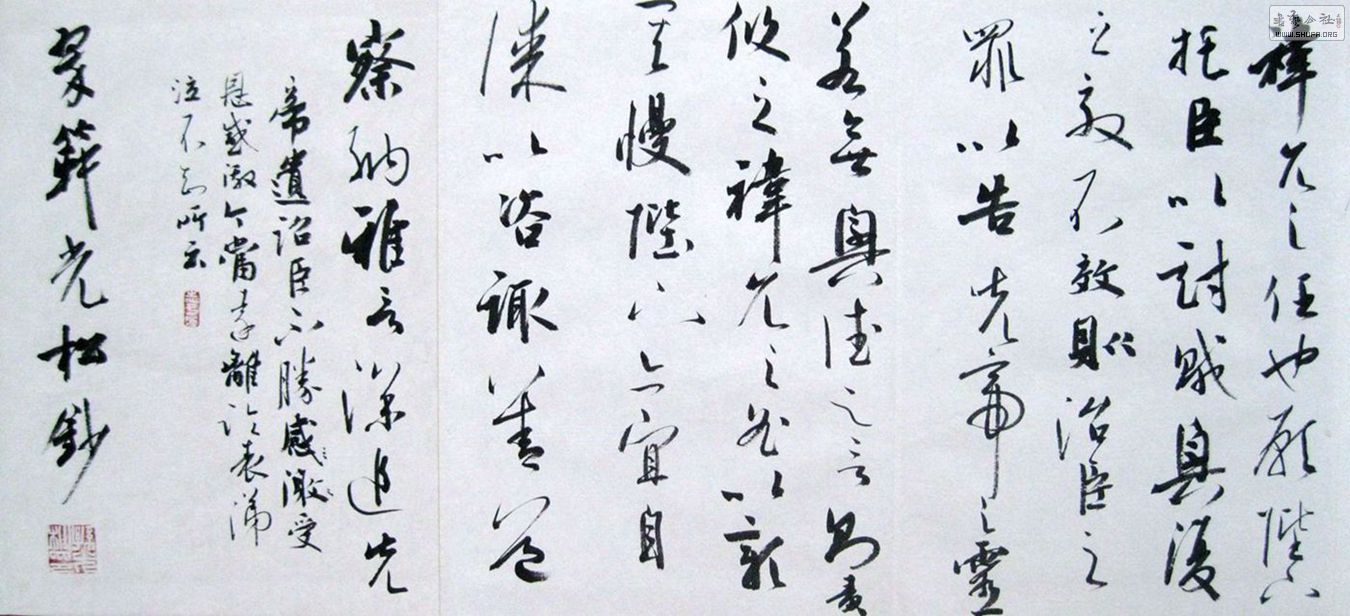 禕允之任也願陛下
托臣以討賊興復
之效不效則治臣之
罪以告先帝之靈
若無興德之言則責
攸之禕允之咎以彰
其慢陛下亦宜自
謀以咨諏善道
察納雅言深追先
帝遺詔臣不勝感激受
恩感激今當遠離臨表涕
泣不知所云
光松鈔
WWW.SHUFA.ORG